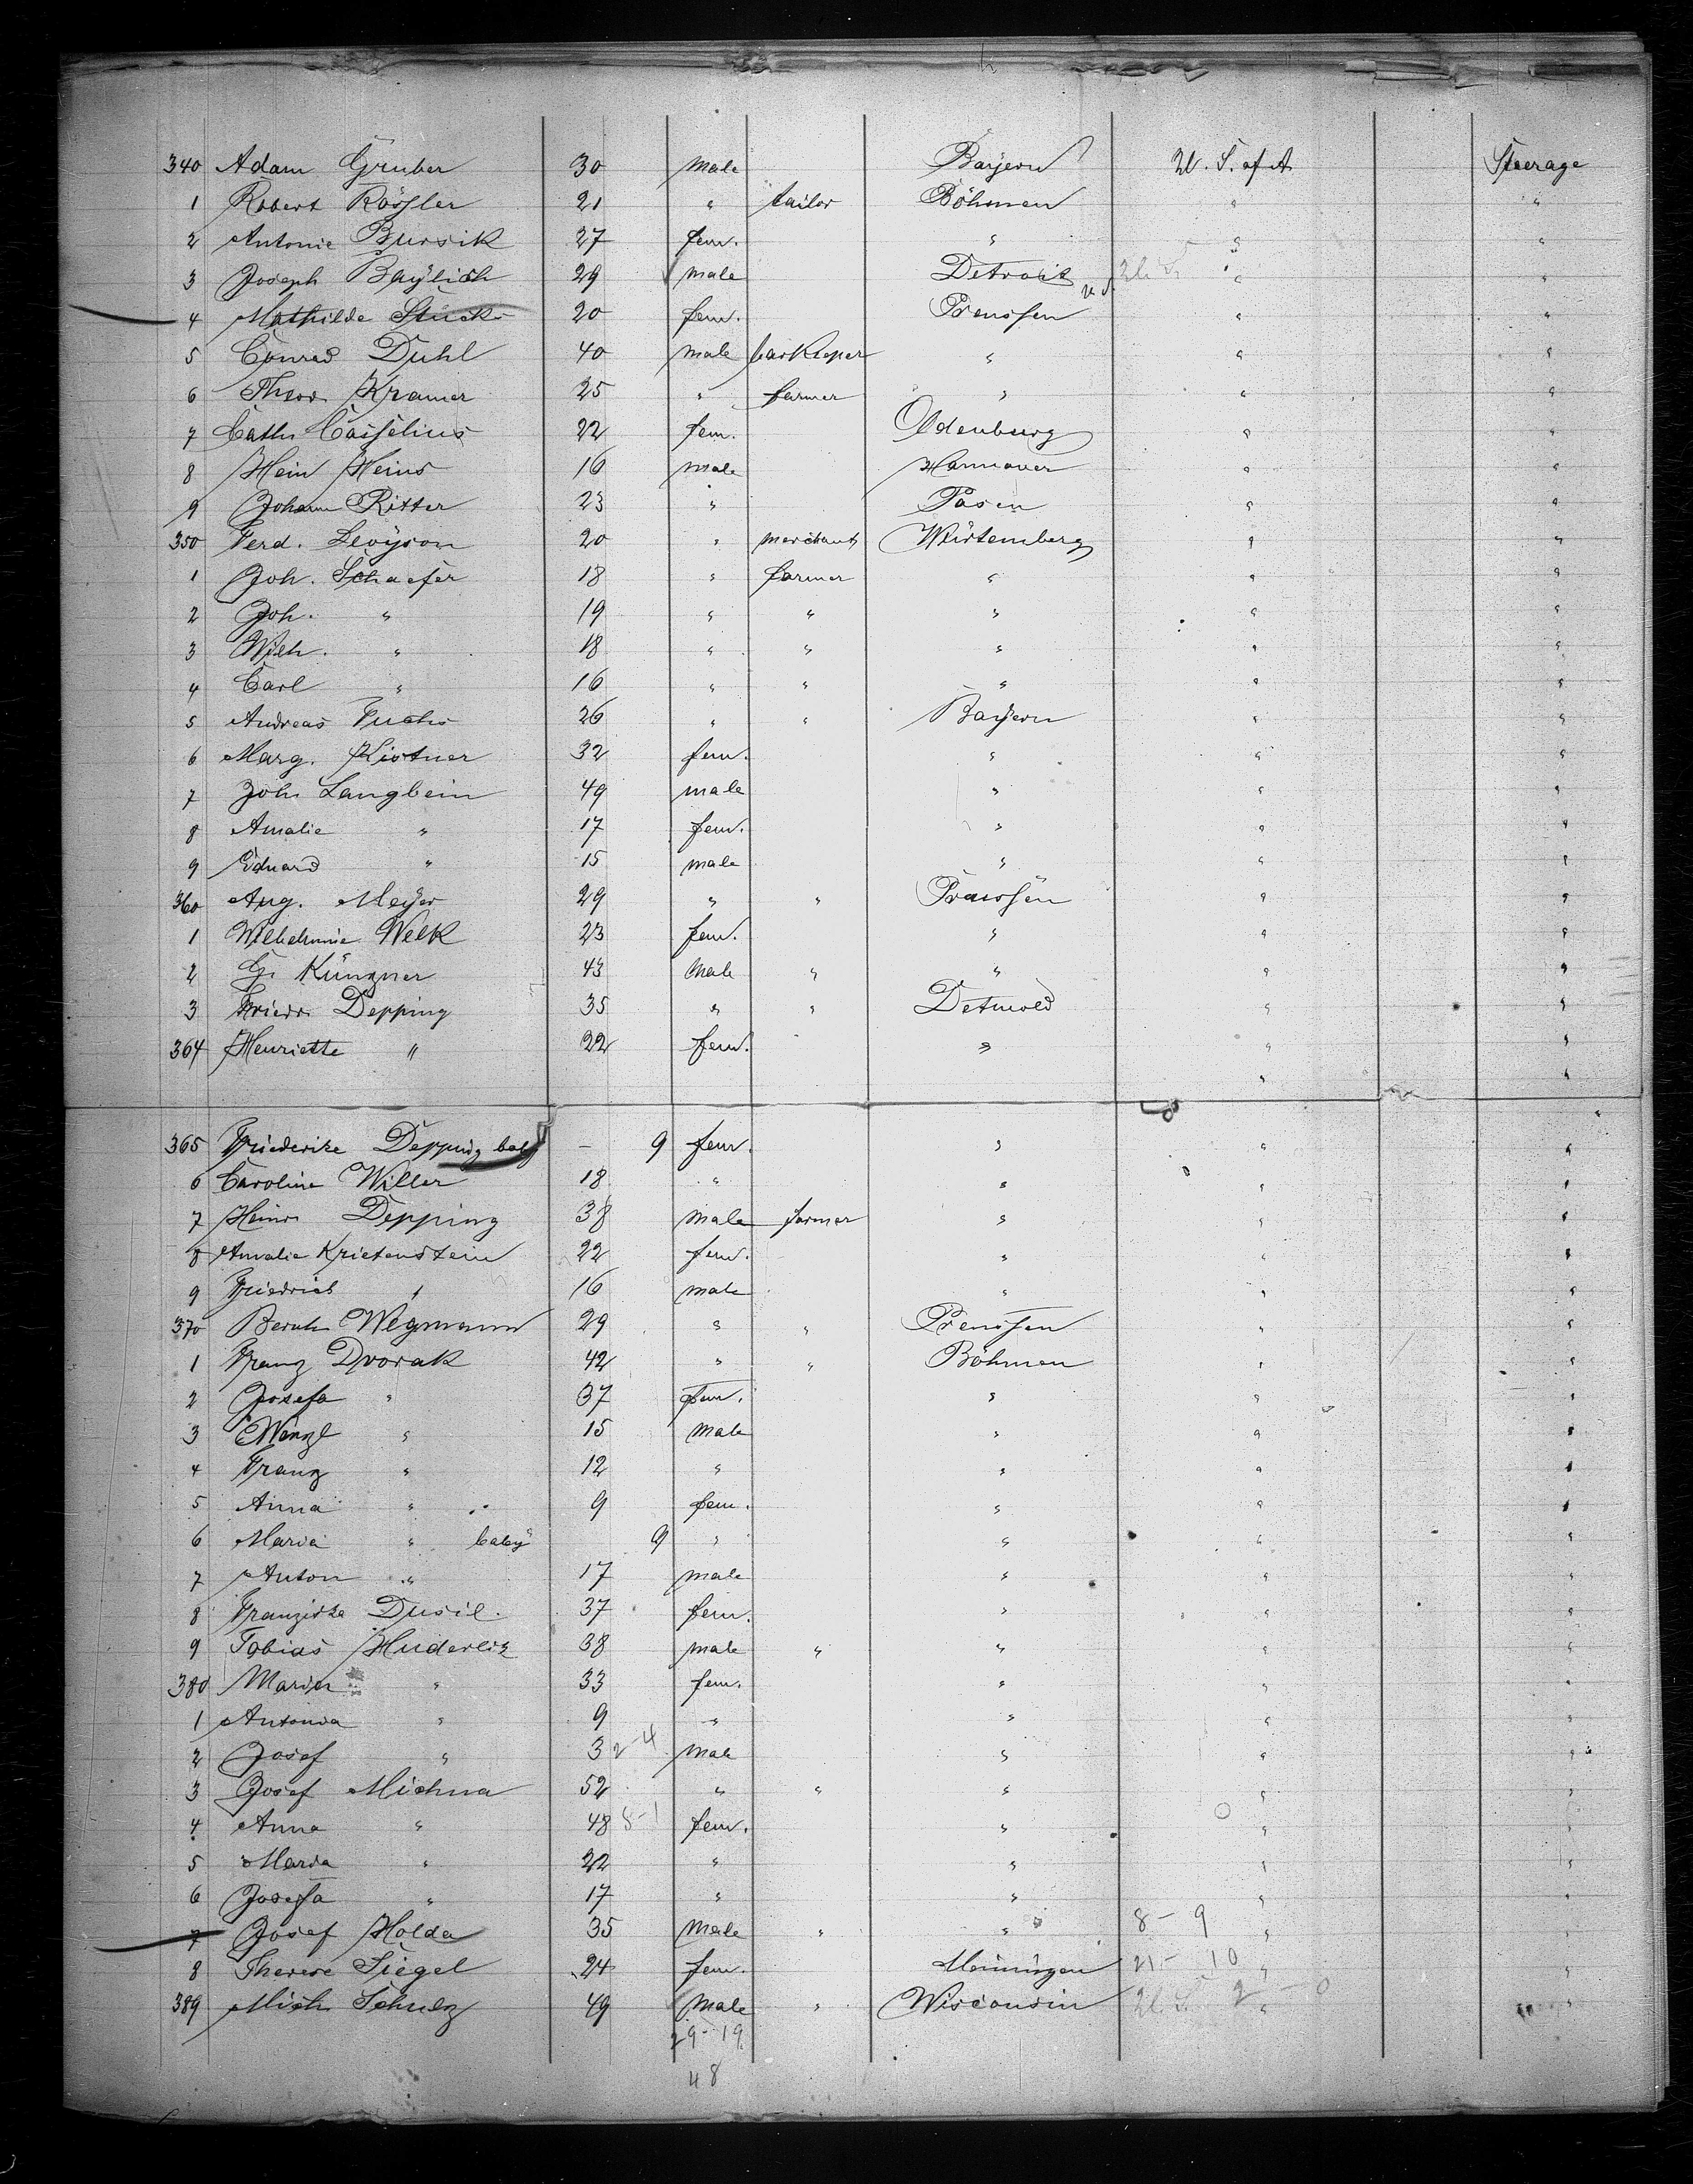 340 Adam Gruber 30 male Bayern U. S. of A. Steerage
1 Robert Rössler 21 " tailor Böhmen " "
2 Antonie Bursik 27 fem. " " "
3 Joseph Baylich 29 male Detroit U.S. " "
4 Mathilde Stücke 20 fem. Preussen " "
5 Conrad Duhl 40 male barkeeper " " "
6 Theod. Kramer 25 " farmer " " "
7 Cath. Casselius 22 fem. Oldenburg " "
8 Hein Heins 16 male Hannover " "
9 Johann Ritter 23 " Posen " "
350 Ferd. Levyson 20 " merchant Würtemberg " "
1 Joh. Schaefer 18 " farmer " " "
2 Joh. " 19 " " " " "
3 Wilh. " 18 " " " " "
4 Carl " 16 " " " " "
5 Andreas Fuchs 26 " " Bayern " "
6 Marg. Kistner 32 fem. " " "
7 Joh. Langbein 49 male " " "
8 Amalie " 17 fem. " " "
9 Eduard " 15 male " " "
360 Aug. Meyer 29 " " Preussen " "
1 Wilhelmine Welk 23 fem. " " "
2 G. Küngner 43 male " " " "
3 Friedr. Depping 35 " " Detmold " "
364 Henriette " 22 fem. " " "
" "
365 Friederike Depping baby - 9 fem. " " "
6 Caroline Willer 18 " " " "
7 Heinr. Depping 38 male farmer " " "
8 Amalie Krietenstein 22 fem. " " "
9 Friedrich " 16 male " " "
370 Bernh. Wegmann 29 " " Preussen " "
1 Franz Dvorak 42 " " Böhmen " "
2 Josefa " 37 fem. " " "
3 Wenzl " 15 male " " "
4 Franz " 12 " " " "
5 Anna " 9 fem. " " "
6 Maria " baby 9 " " " "
7 Anton " 17 male " " "
8 Franziska Dusil. 37 fem. " " "
9 Tobias Huderlik 38 male " " " "
380 Maria " 33 fem. " " "
1 Antonia " 9 " " " "
2 Josef " 3 2-4 male " " "
3 Josef Michna 52 " " " " "
4 Anna " 48 8-1 fem. " " "
5 Maria " 22 " " " "
6 Josefa " 17 " " " "
7 Josef Holda 35 male " " 8-9 " "
8 Therese Siegel 24 fem. Meiningen 21-10 " "
389 Mich. Schulz 49 male " Wisconsin U.S. 2-0 " "
29-19
48